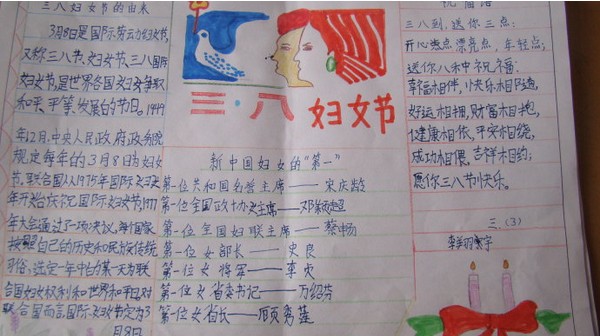 三八妇女节的由来
3月8日是国际劳动妇女节,
又称三八节、妇女节、三八国际
妇女节,是世界各国妇女争取
和平、平等、发展的节日。1949
年12月,中央人民政府政务院
规定每年的3月8日为妇女
节,联合国从1975年国际妇女
年开始庆祝国际妇女节,1977
年大会通过了一项决议,每个国家
按照自己的历史和民族传统
习俗,选定一年中的某一天为联
合国妇女权利和世界和平日,对
联合国而言,国际妇女节定为3
月8日
三·八
妇女节
新中国妇女的“第一”
第一位共和国名誉主席——宋庆龄
第一位全国政协主席——邓颖超
第一位全国妇联主席——蔡畅
第一位女部长——史良
第一位女将军——李贞
第一位女省委书记——万绍芬
第一位女省长——顾秀莲
祝福语
三八到,送你三点:
开心点,漂亮点,年轻点;
送你八种祝福:
幸福相伴,快乐相随,
好运相拥,财富相抱,
健康相依,平安相绕,
成功相偎,吉祥相约;
愿你三八节快乐。
三.(3)